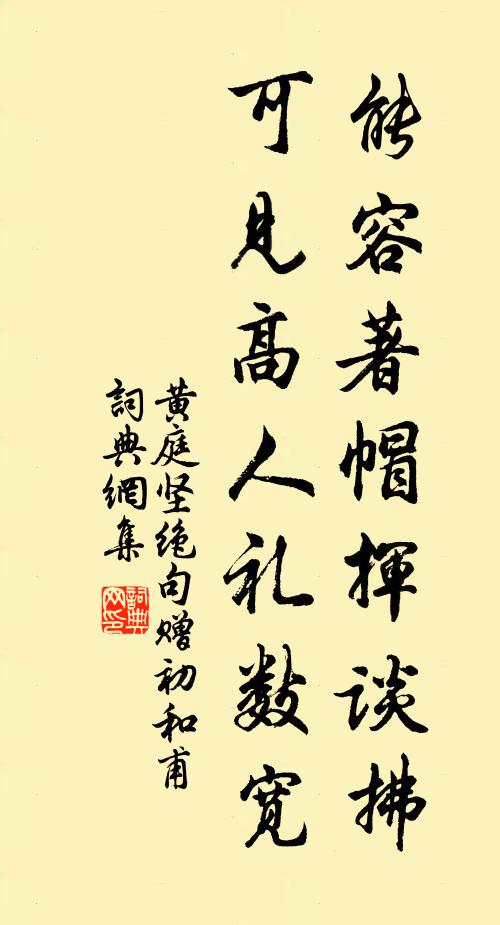 能容著帽揮談拂
可見高人礼數寬
黄庭坚绝句赠初和甫
詞典網集
詞典网印